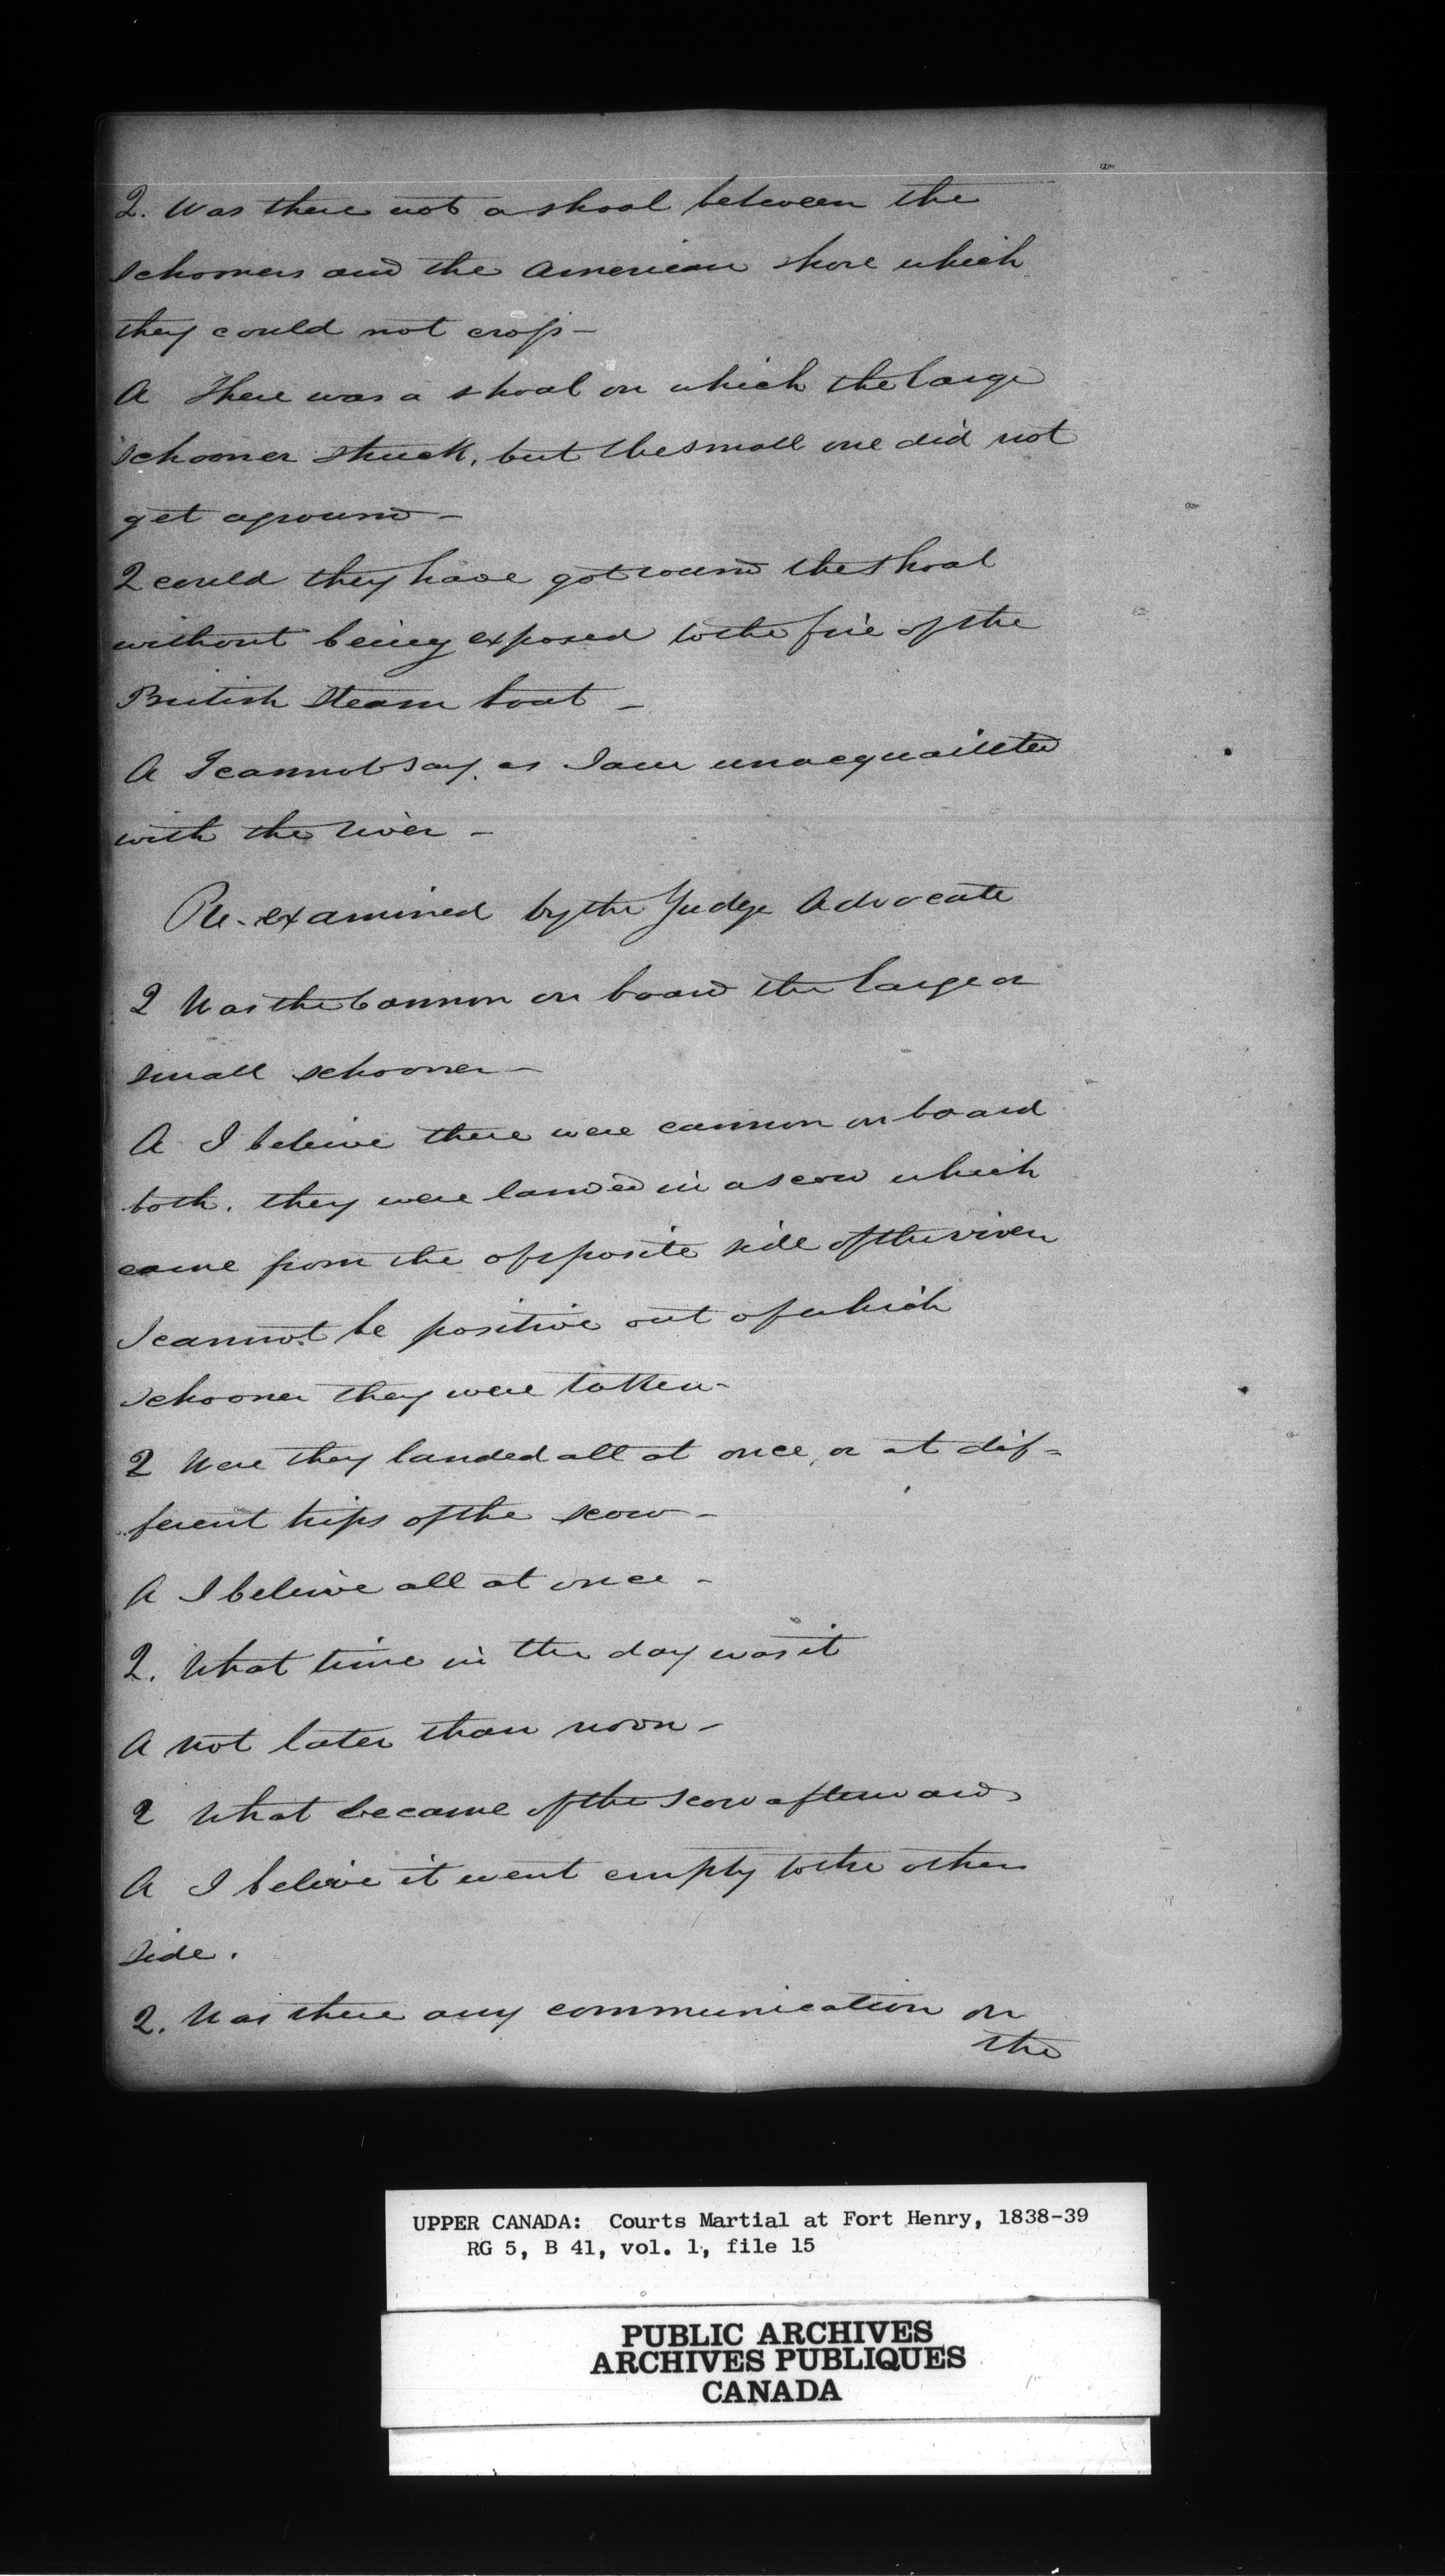 Q. Was there not a shoal between the
schooners and the American shore which
they could not cross –
A There was a shoal on which the large
schooner struck, but the small one did not
get aground –
Q could they have got round the shoal
without being exposed to the fire of the
British Steam boat –
A I cannot say. as I am unacquainted
with the river –
Re-examined by the Judge Advocate
Q Was the Cannon on board the large or
small schooner –
A I beleive there were cannon on board
both. they were landed in a scow which
came from the opposite side of the river
I cannot be positive out of which
schooner they were taken –
Q Were they landed all at once, or at dif=
ferent trips of the scow –
A I beleive all at once –
Q. What time in the day was it
A not later than noon –
Q What became of the scow afterwards
A I beleive it went empty to the other
side.
Q. Was there any communication on
the
UPPER CANADA: Courts Martial at Fort Henry, 1838-39
RG 5, B 41, vol. 1, file 15
PUBLIC ARCHIVES
ARCHIVES PUBLIQUES
CANADA